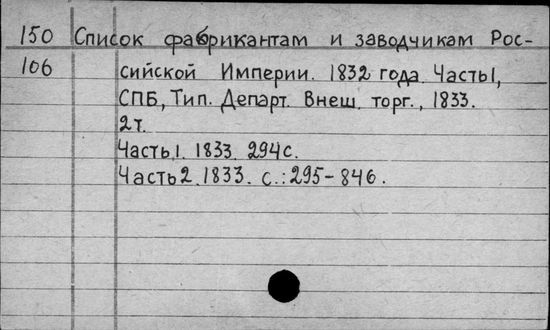 150 Список фабрикантам и заводчикам Рос-
106 сийской Империи. 1832 года. Часть 1,
СПБ, Тип. Департ. Внеш. торг., 1833.
2т.
Часть 1. 1833. 294с.
Часть 2. 1833. с.: 295-846.